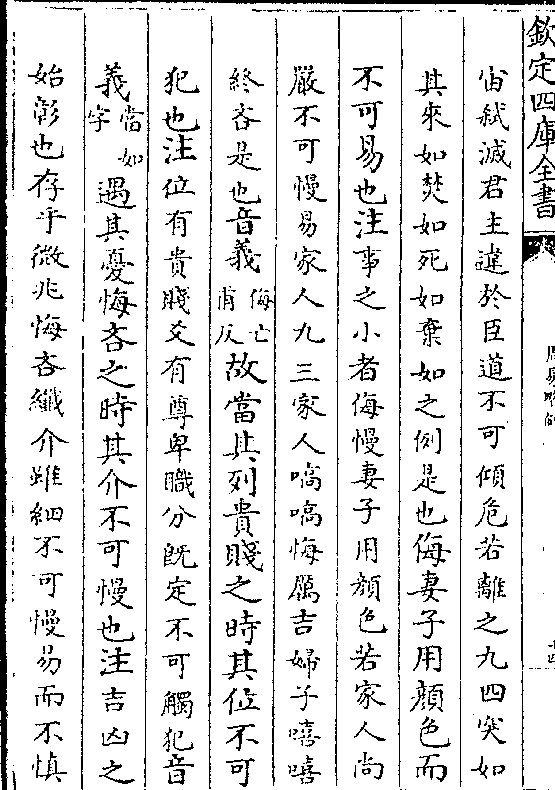 欽定四庫全書
宙弑滅君主違於臣道不可傾危若離之九四突如
其來如焚如死如棄如之例是也侮妻子用顔色而
不可易也注事之小者侮慢妻子用顔色若家人尚
嚴不可慢易家人九三家人嗃嗃悔厲吉婦子嘻嘻
終吝是也音義侮亡甫反故當其列貴賤之時其位不可
犯也注位有貴賤爻有尊卑職分既定不可觸犯音
義當如字遇其憂悔吝之時其介不可慢也注吉凶之
始彰也存乎微兆悔吝纖介雖細不可慢易而不慎